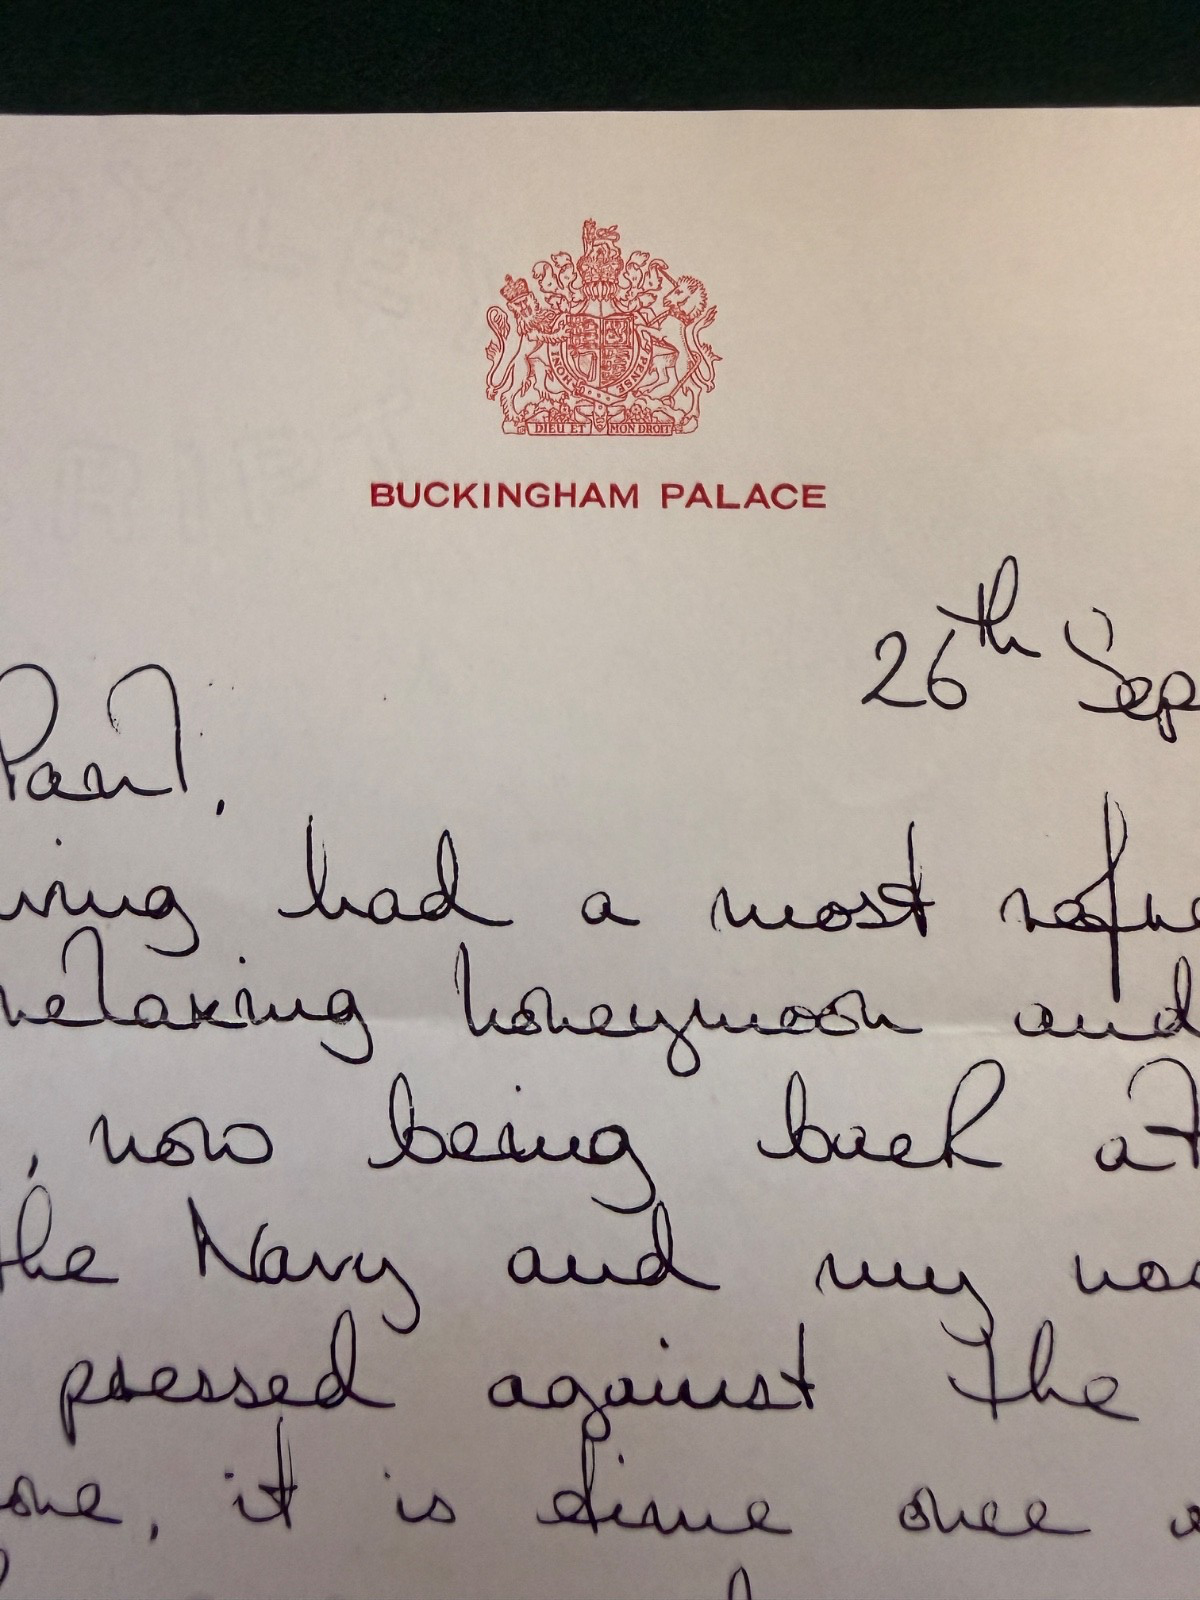 HONI PENSE
DIEU ET MON DROIT
BUCKINGHAM PALACE
26th Sep
Paul,
ving had a most refre
relaxing honeymoon and
, now being back at
the Navy and my nos
pressed against the
one, it is time once